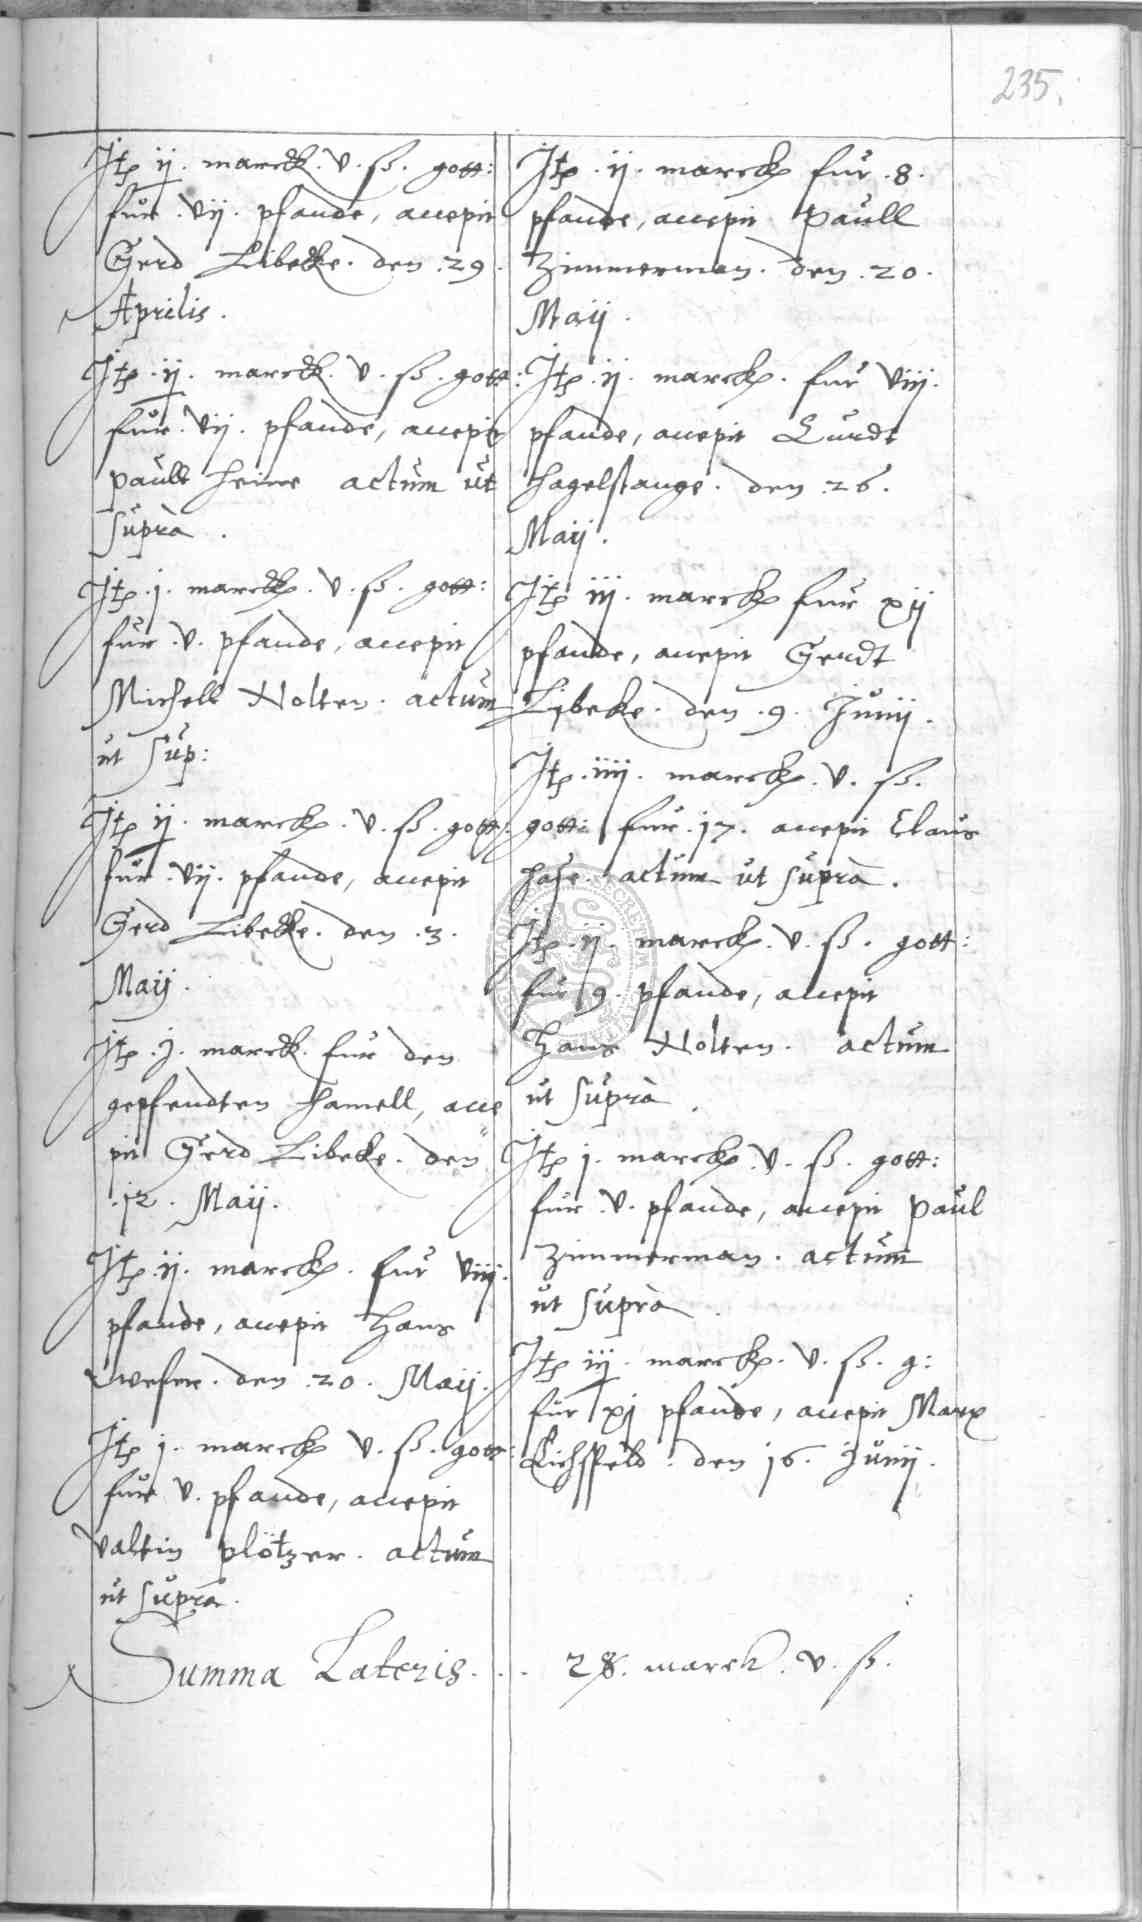 235.
Itz .ij. marck. v. ß. gott:
fur .vij. pfande, accepit
Gerd Libecke. den .29.
Aprilis.
Itz .ij. marck. v. ß. gott:
fur .vij. pfande, accepit
paull Heine actum ut
supra.
Itz .j. marck. v. ß. gott:
fur .v. pfande, accepit
Michell Nolten. actum
ut sup:
Itz ij. marck. v. ß. gott:
fur .vij. pfande, accepit
Gerd Libecke. den .3.
Maij.
Itz .j. marck. fur den
gepfendten hamell, acce
pit Gerd Libeke. den
.12. Maij.
Itz .ij. marck. fur viij.
pfande, accepit Hans
den .20. Maij.
Itz j. marck v. ß. gott:
fur v. pfande, accepit
Valtin plötzer. actum
ut supra.
Itz .ij. marck fur .8.
pfande, accepit Paull
Zimmerman. den .20.
Maij.
Itz .ij. marck. fur viij.
pfande, accepit Curdt
Hagelstange. den .26.
Maij.
Itz iij. marck fur xij
pfande, accepit Gerdt
Libeke. den .9. Junij.
Itz .iiij. marck. v. ß.
gott: fur .17. accepit Claus
Hase. actum ut supra.
Itz .ij. marck. v. ß. gott:
fur 9. pfande, accepit
Hans Nolten. actum
ut supra.
Itz j. marck. v. ß. gott:
fur .v. pfande, accepit Paul
Zimmerman. actum
ut supra.
Itz iij. marck. v. ß. g:
fur xj pfande, accepit Marx
Eichsfeld. den 16. Junij.
Summa Lateris. . . 28. marck. v. ß.